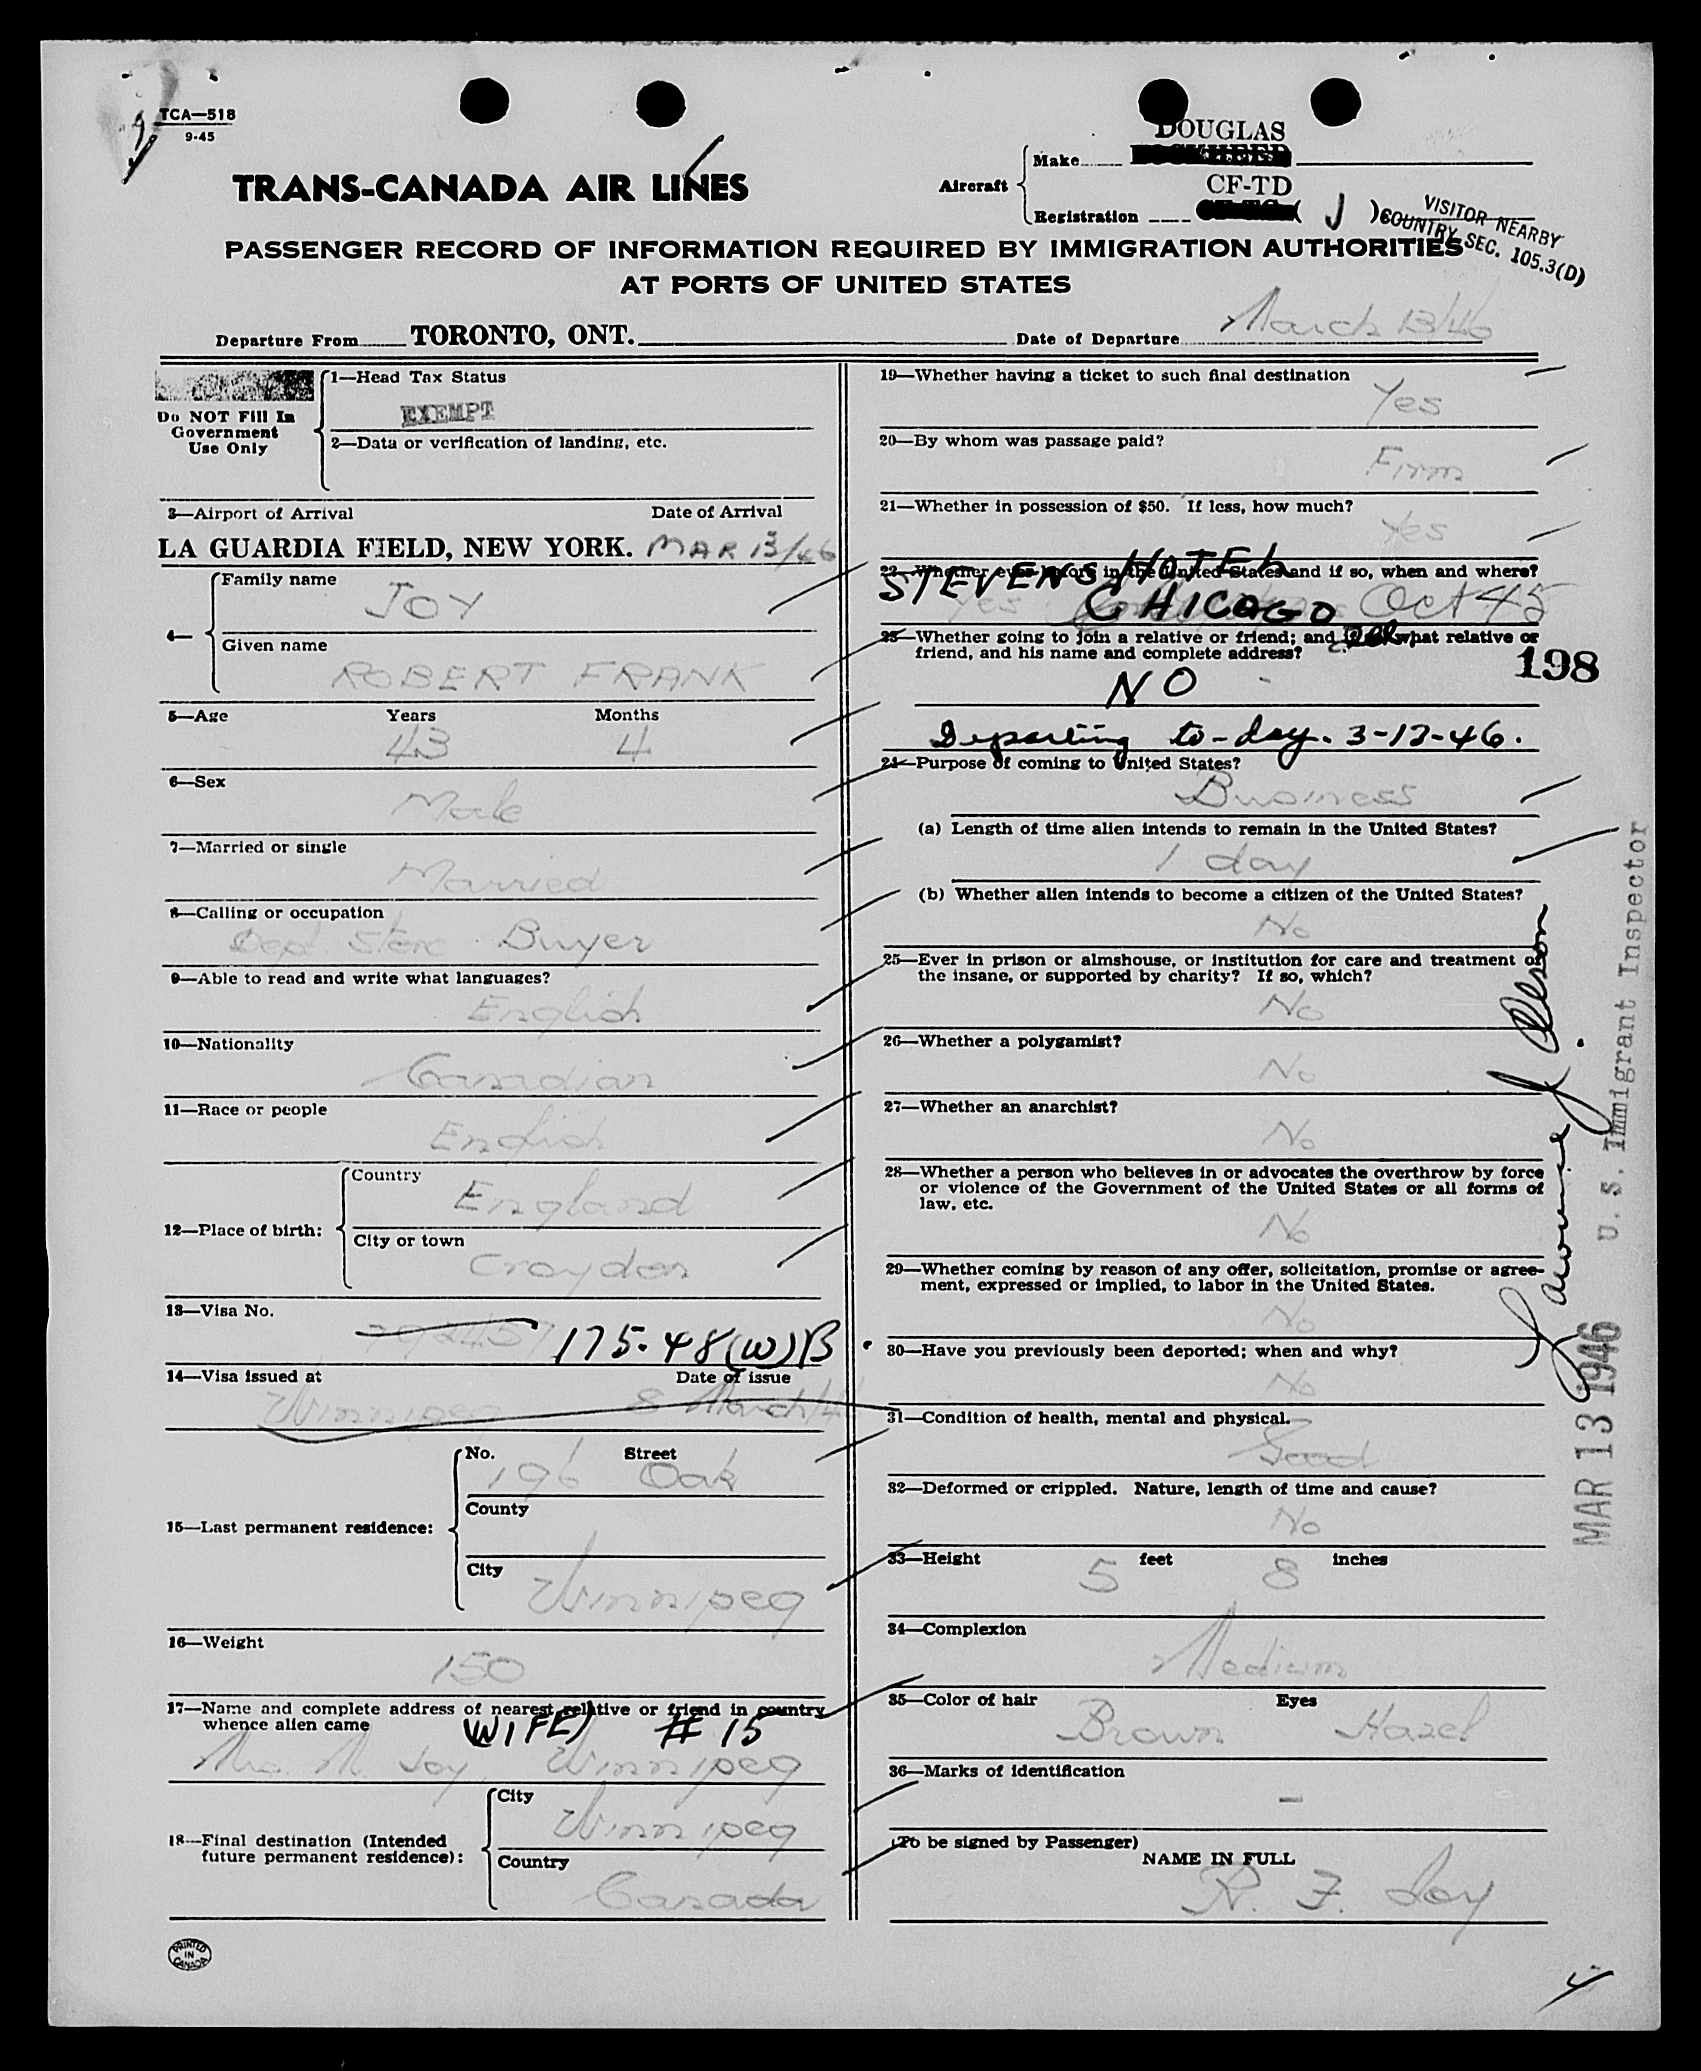 TCA—518
9-45
TRANS-CANADA AIR LINES
Aircraft
Make
DOUGLAS
Registration
CF-TD
( J )
VISITOR NEARBY
COUNTRY SEC. 105.3(D)
PASSENGER RECORD OF INFORMATION REQUIRED BY IMMIGRATION AUTHORITIES
AT PORTS OF UNITED STATES
Departure From TORONTO, ONT. Date of Departure March 13/46
Do NOT Fill In
Government
Use Only
1—Head Tax Status
EXEMPT
2—Data or verification of landing, etc.
3—Airport of Arrival Date of Arrival
LA GUARDIA FIELD, NEW YORK. MAR 13/46
4—
Family name
JOY
Given name
ROBERT FRANK
5—Age Years Months
43 4
6—Sex
Male
7—Married or single
Married
8—Calling or occupation
Dept Store Buyer
9—Able to read and write what languages?
English
10—Nationality
Canadian
11—Race or people
English
12—Place of birth:
Country
England
City or town
Croydon
13—Visa No.
175.48(W)B
14—Visa issued at Date of issue
Winnipeg 8 March/46
15—Last permanent residence:
No. Street
196 Oak
County
City
Winnipeg
16—Weight
150
17—Name and complete address of nearest relative or friend in country
whence alien came
(WIFE) # 15
Mrs. M. Joy, Winnipeg
18—Final destination (Intended
future permanent residence):
City
Winnipeg
Country
Canada
PRINTED
IN
CANADA
19—Whether having a ticket to such final destination
Yes
20—By whom was passage paid?
Firm
21—Whether in possession of $50. If less, how much?
Yes
22—Whether ever before in the United States and if so, when and where?
STEVENS HOTEL
CHICAGO
Yes Oct 45
23—Whether going to join a relative or friend; and if so, what relative or
friend, and his name and complete address?
198
NO
Departing to-day. 3-13-46.
24—Purpose of coming to United States?
Business
(a) Length of time alien intends to remain in the United States?
1 day
(b) Whether alien intends to become a citizen of the United States?
No
25—Ever in prison or almshouse, or institution for care and treatment of
the insane, or supported by charity? If so, which?
No
26—Whether a polygamist?
No
27—Whether an anarchist?
No
28—Whether a person who believes in or advocates the overthrow by force
or violence of the Government of the United States or all forms of
law, etc.
No
29—Whether coming by reason of any offer, solicitation, promise or agree-
ment, expressed or implied, to labor in the United States.
No
30—Have you previously been deported; when and why?
No
31—Condition of health, mental and physical.
Good
32—Deformed or crippled. Nature, length of time and cause?
No
33—Height 5 feet 8 inches
34—Complexion
Medium
35—Color of hair Eyes
Brown Hazel
36—Marks of identification
–
(To be signed by Passenger)
NAME IN FULL
R. F. Joy
U. S. Immigrant Inspector
MAR 13 1946